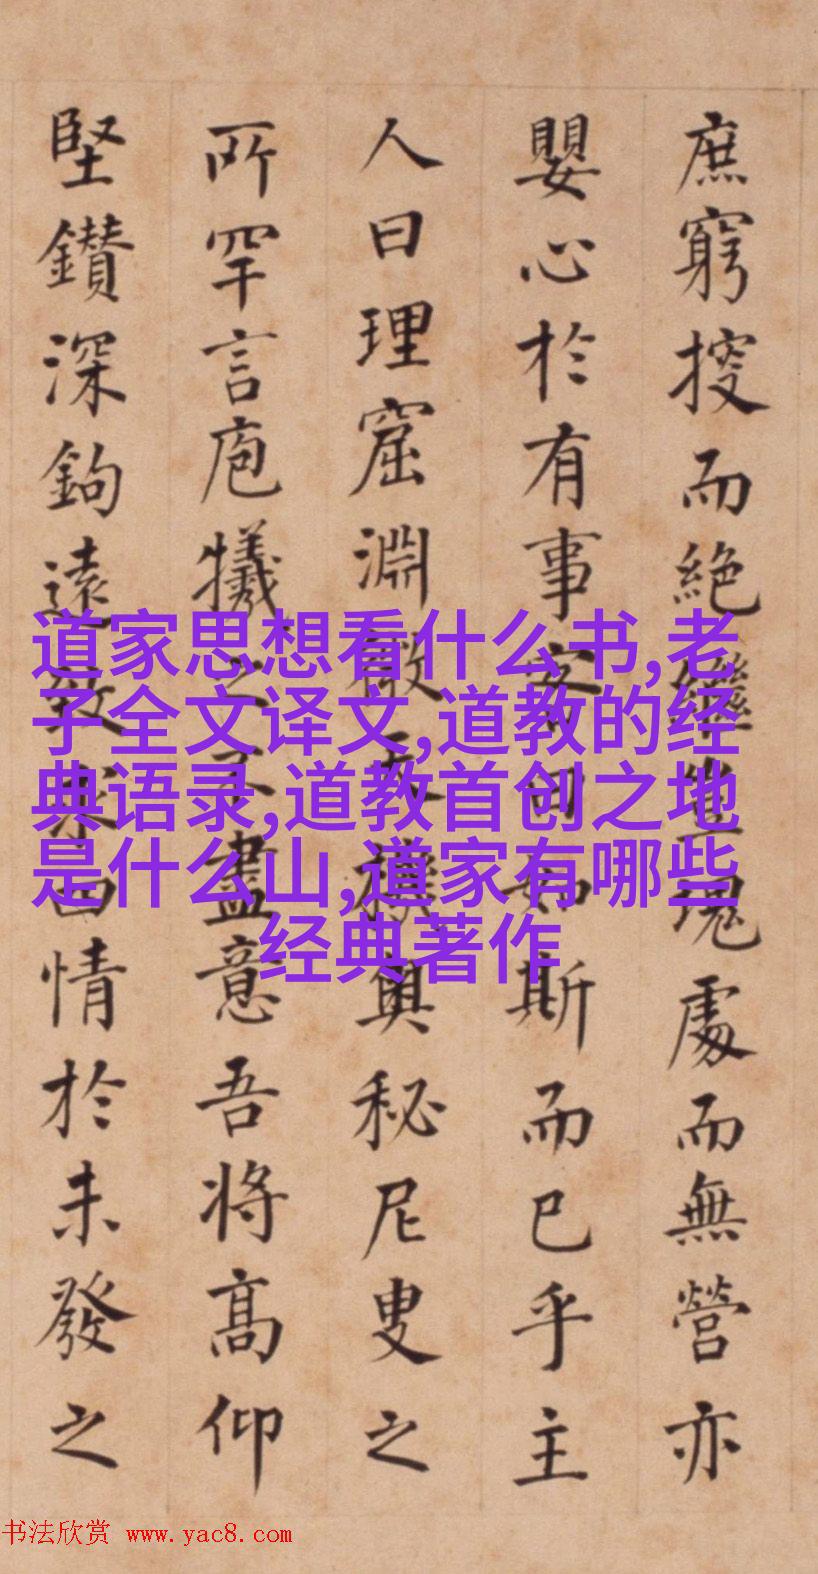 庶窮搜而絕繼塊處而無營亦
嬰心於有事客曰如斯而已乎主
人曰理窟淵微機奧秘尼叟之
所罕言庖犧之不盡意吾將高仰
堅鑽深鉤遠致情於未發之
道家思想看什么书,老
子全文译文,道教的经
典语录,道教首创之地
是什么山,道家有哪些
经典著作
书法欣赏 www.yac8.com